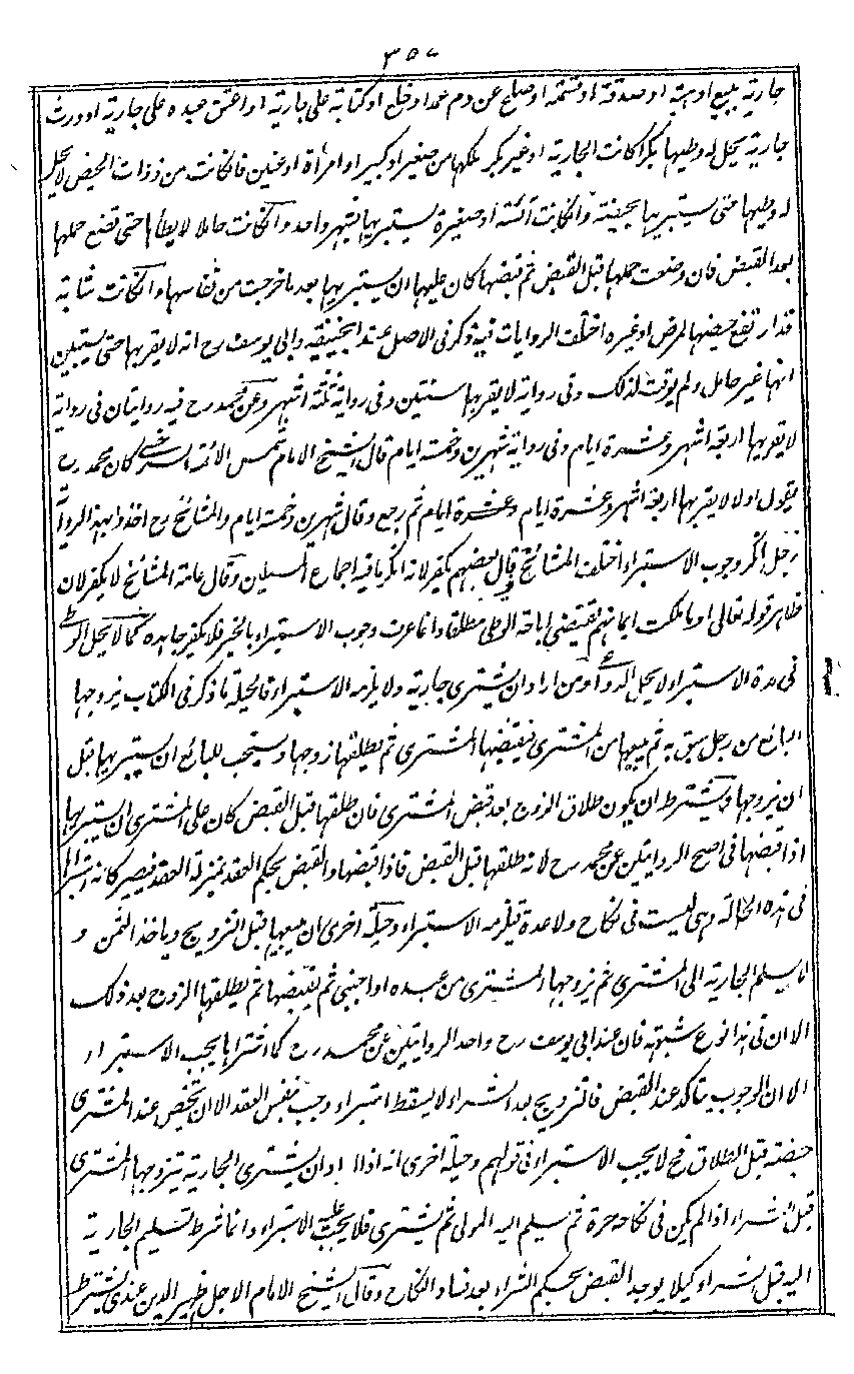 ٣٥٧
جارية ببيع او هبة او صدقة او قسمة او صلح عن دم عمد او خلع او كتابة على جارية او اعتق عبده على جارية او ورث
جارية يحل له وطيها بكرا كانت الجارية او غير بكر ملكها من صغير او كبير او امرأة او عنين فانكانت من ذوات الحيض لا يحل
له وطيها حتى يستبريها بحيضة وانكانت آئسة او صغيرة يستبريها بشهر واحد وانكانت حاملا لا يطأها حتى تضع حملها
بعد القبض فان وضعت حملها قبل القبض ثم قبضها كان عليها ان يستبريها بعد ما خرجت من نفاسها وانكانت شابة
قد ارتفع حيضها لمرض او غيره اختلف الروايات فيه ذكر فى الاصل عند ابيحنيفة وابى يوسف رح انه لا يقربها حتى يستبين
انها غير حامل ولم يوقت لذلك وفى رواية لا يقربها سنتين وفى رواية ثلثة اشهر وعن محمد رح فيه روايتان فى رواية
لا يقربها اربعة اشهر وعشرة ايام وفى رواية شهرين وخمسة ايام قال الشيخ الامام شمس الائمة السرخسى كان محمد رح
يقول اولا لا يقربها اربعة اشهر وعشرة ايام وعشرة ايام ثم رجع وقال شهرين وخمسة ايام والمشائخ رح اخذوا بهذه الرواية
رجل انكر وجوب الاستبراء اختلف المشائخ قال بعضهم يكفر لانه انكر ما فيه اجماع المسلمين وقال عامة المشائخ لا يكفر لان
ظاهر قوله تعالى او ما ملكت ايمانهم يقتضى اباحة الوطى مطلقا وانما عرف وجوب الاستبراء بالخبر فلا يكفر جاحده كما لا يحل الوطى
فى مدة الاستبراء لا يحل الدواعى ومن اراد ان يشترى جارية ولا يلزمه الاستبراء فالحيلة ما ذكر فى الكتاب يزوجها
البائع من رجل يثق به ثم يبيعها من المشترى فيقبضها المشترى ثم يطلقها زوجها ويستحب للبائع ان يستبريها قبل
ان يزوجها ويشترط ان يكون طلاق الزوج بعد قبض المشترى فان طلقها قبل القبض كان على المشترى ان يستبريها
اذا قبضها فى اصح الروايتين عن محمد رح لانه طلقها قبل القبض فاذا قبضها والقبض بحكم العقد بمنزلة العقد فيصير كانه اشتراها
فى هذه الحالة وهى ليست فى نكاح ولا عدة فيلزمه الاستبراء وحيلة اخرى ان يبيعها قبل التزويج وياخذ الثمن و
لا يسلم الجارية الى المشترى ثم يزوجها المشترى من عبده او اجنبى ثم يقبضها ثم يطلقها الزوج بعد ذلك
الا ان فى هذا نوع شبهة فان عند ابى يوسف رح واحد الروايتين عن محمد رح كما اشتراها يجب الاستبراء
الا ان الوجوب يتاكد عند القبض فالتزويج بعد الشراء لا يسقط استبراء وجب بنفس العقد الا ان تحيض عند المشترى
حيضة قبل الطلاق فح لا يجب الاستبراء فى قولهم وحيلة اخرى انه اذا اراد ان يشترى الجارية يتزوجها المشترى
قبل الشراء اذا لم يكن فى نكاحه حرة ثم يسلم اليه المولى ثم يشترى فلا يجب عليه الاستبراء وانما شرط تسليم الجارية
اليه قبل الشراء كيلا يوجد القبض بحكم الشراء بعد فساد النكاح وقال الشيخ الامام الاجل ظهير الدين عندى يشترط